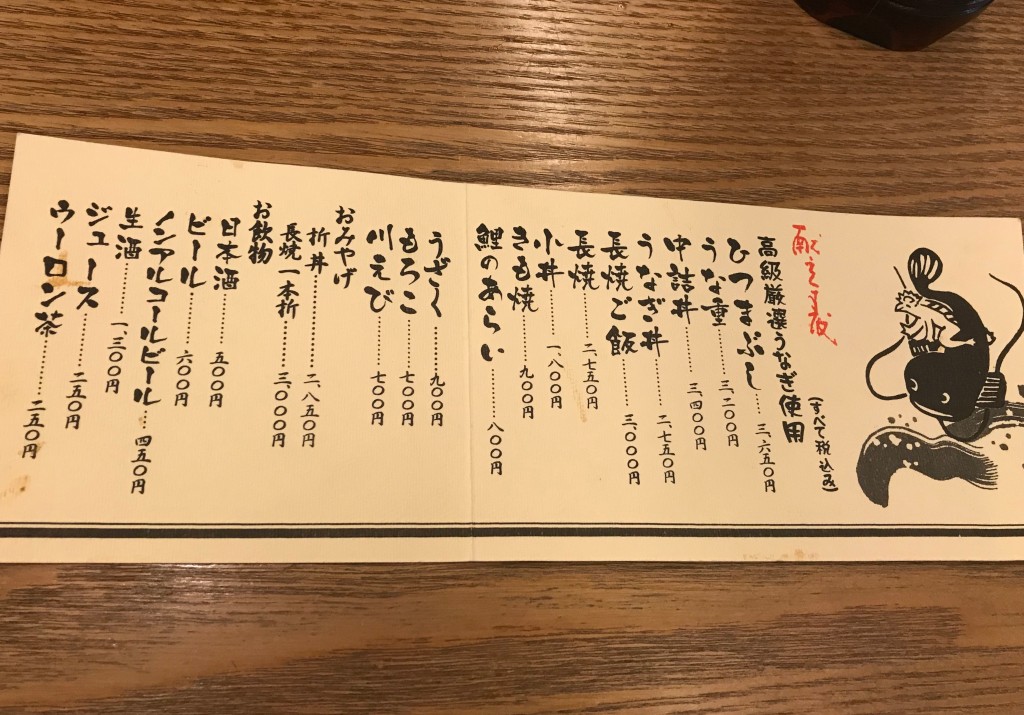 献立表
高級厳選うなぎ使用
(すべて税込み)
ひつまぶし……三、六五〇円
うな重……三、二〇〇円
中詰丼……三、四〇〇円
うなぎ丼……二、七五〇円
長焼ご飯……三、〇〇〇円
長焼……二、七五〇円
小丼……一、八〇〇円
きも焼……九〇〇円
鯉のあらい……八〇〇円
うざく……九〇〇円
もろこ……七〇〇円
川えび……七〇〇円
おみやげ
折丼……二、八五〇円
長焼一本折……三、〇〇〇円
お飲物
日本酒……五〇〇円
ビール……六〇〇円
ノンアルコールビール…四五〇円
生酒……一、三〇〇円
ジュース……二五〇円
ウーロン茶……二五〇円